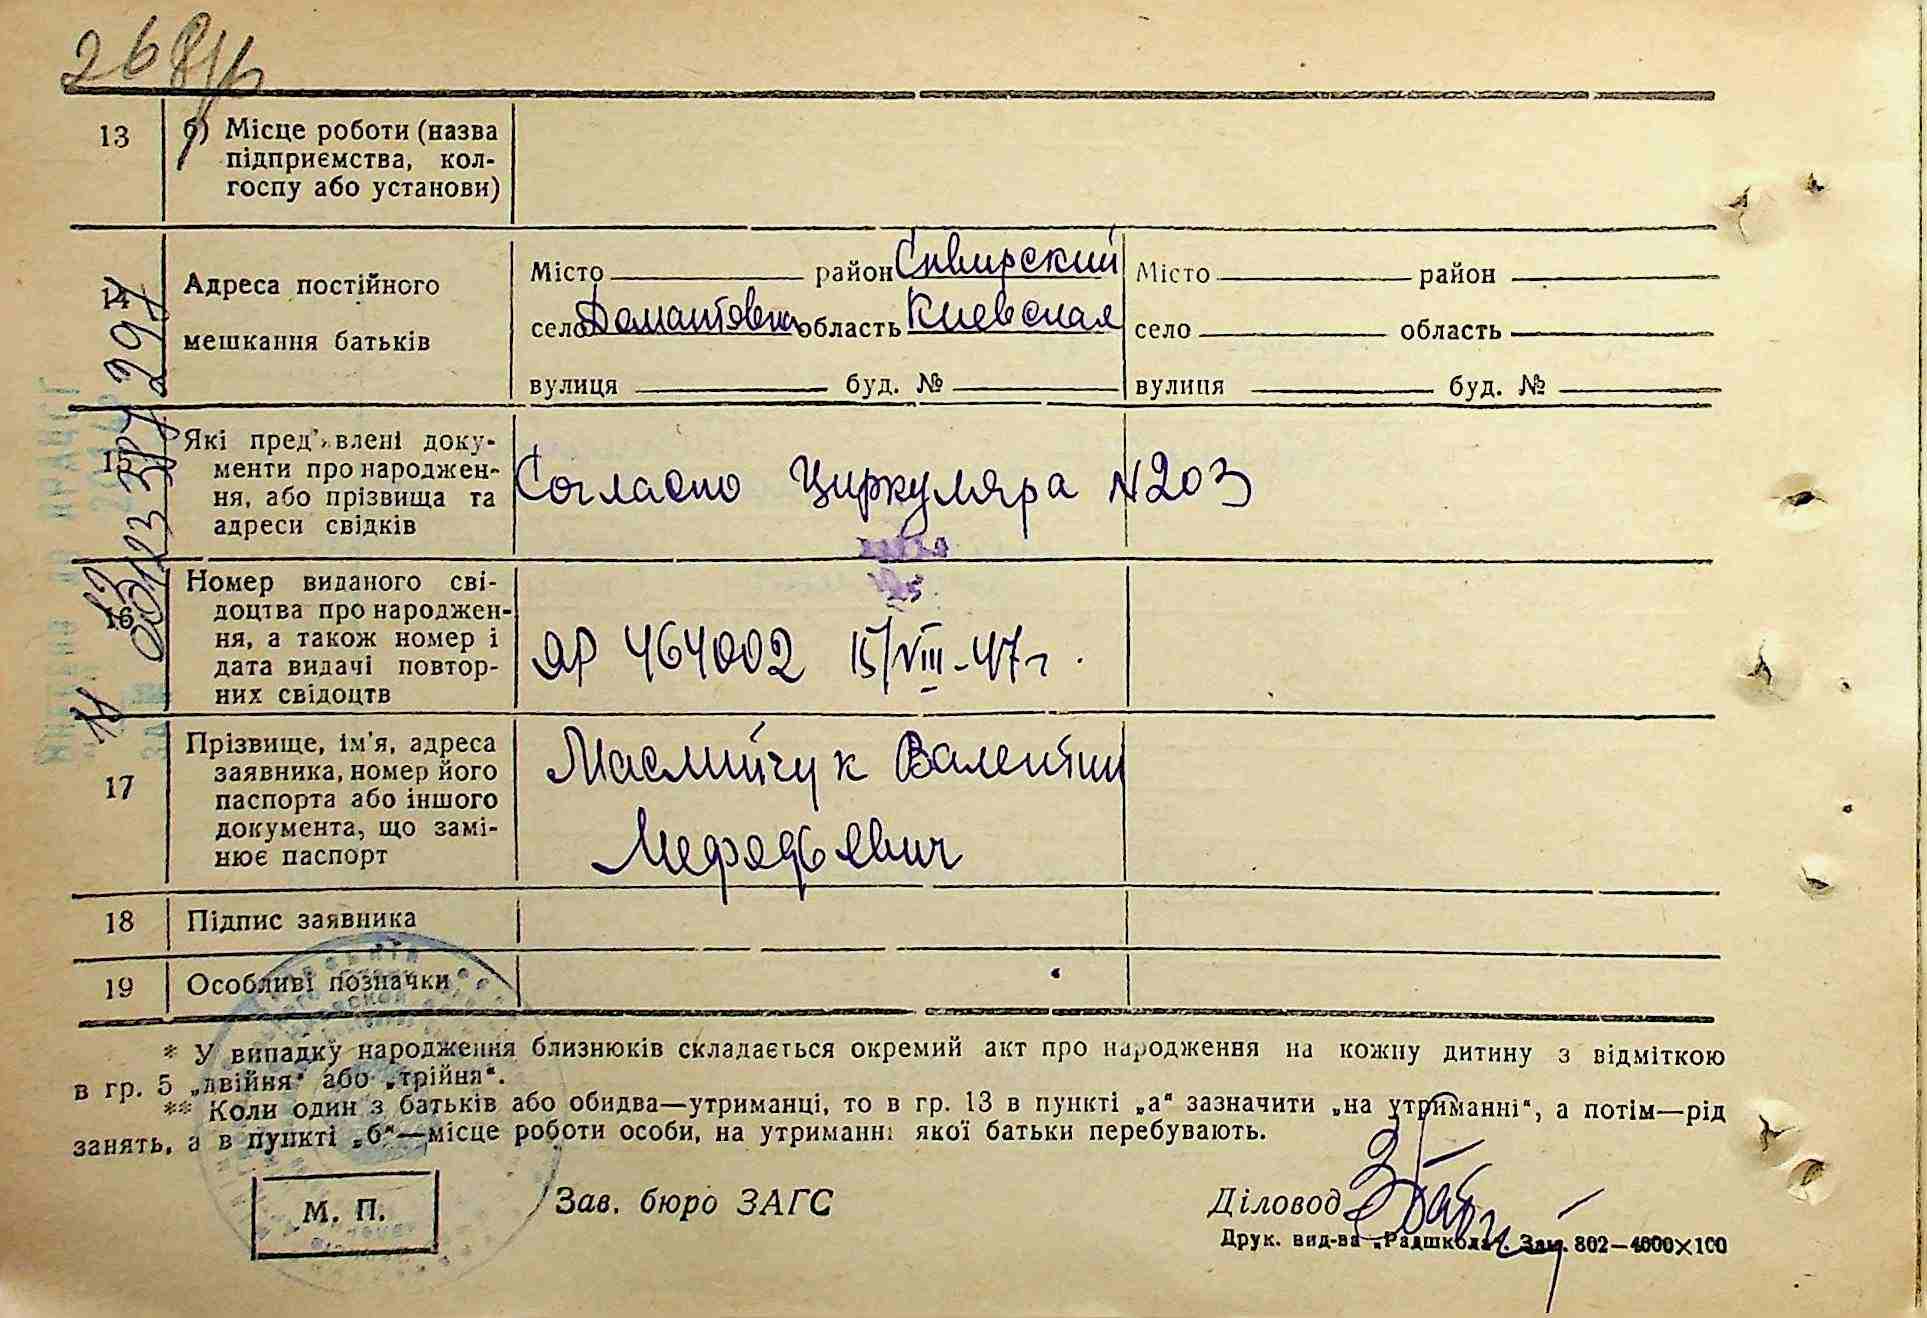 268
13 б) Місце роботи (назва
підприємства, кол-
госпу або установи)
14 Адреса постійного
мешкання батьків
Місто район Сквирский
село Домантовка область Киевская
вулиця буд. №
Місто район
село область
вулиця буд. №
15 Які пред'явлені доку-
менти про народжен-
ня, або прізвища та
адреси свідків
Согласно Циркуляра №203
16 Номер виданого сві-
доцтва про народжен-
ня, а також номер і
дата видачі повтор-
них свідоцтв
ЯР 464002 15/VIII-47 г.
17 Прізвище, ім'я, адреса
заявника, номер його
паспорта або іншого
документа, що замі-
нює паспорт
Маслийчук Валентин
Мефодьевич
18 Підпис заявника
19 Особливі позначки
* У випадку народження близнюків складається окремий акт про народження на кожну дитину з відміткою
в гр. 5 „двійня“ або „трійня“.
** Коли один з батьків або обидва—утриманці, то в гр. 13 в пункті „а“ зазначити „на утриманні“, а потім—рід
занять, а в пункті „б“—місце роботи особи, на утриманні якої батьки перебувають.
М. П.
Зав. бюро ЗАГС
Діловод
Друк. вид-ва „Радшкола“. Зам. 802—4000×100